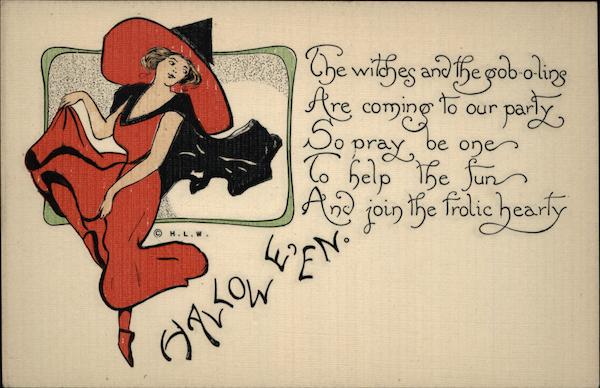 The witches and the gob-o-lins
Are coming to our party
So pray be one
To help the fun
And join the frolic hearty
© H. L. W.
HALOWE'EN.